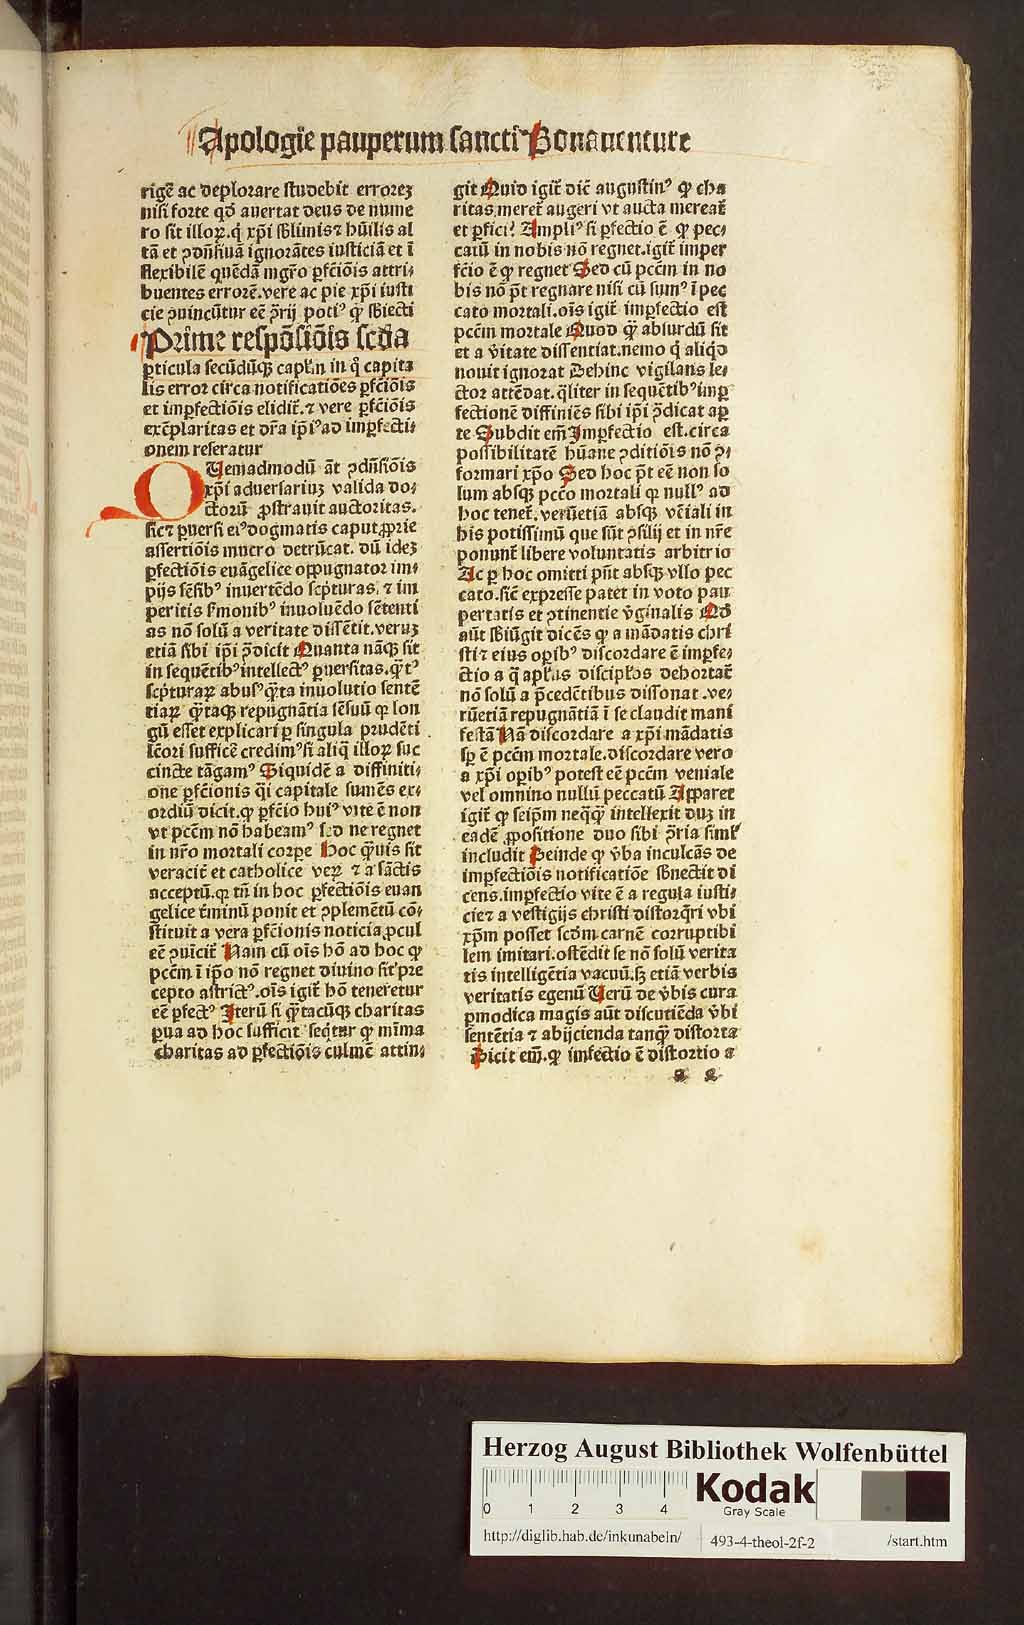 Apologie pauperum sancti Bonauenture
rigē ac deplorare studebit errorez
nisi forte qd̄ auertat deus de nume
ro sit illoꝝ. q̄ xp̄i sblimis ⁊ hūilis al
tā et ꝯdn̄siuā ignorātes iusticiā et ī
flexibilē quēdā mgr̄o ꝑfcīois attri⸗
buentes errorē. vere ac pie xp̄i iusti
cie ꝯuincūtur eē ꝯrij potiꝰ qꝫ sbiecti
Prime respōsiōis scd̄a
ꝑticula secūdūqꝫ capl̄m in q̄ capita
lis error circa notificatiōes ꝑfciōis
et imꝑfectiōis elidit̄. ⁊ vere ꝑfciōis
exēplaritas et dr̄a ip̄iꝰ ad imꝑfecti⸗
onem referatur
QUemadmodū āt ꝯdn̄siōis
xp̄i aduersariuꝫ valida do⸗
ctorū ꝓstrauit auctoritas.
sic ⁊ ꝑuersi eiꝰ dogmatis caput ꝓprie
assertiōis mucro detrūcat. dū ideꝫ
ꝑfectiōis euāgelice oppugnator im⸗
pijs sēsibꝰ inuertēdo scpturas. ⁊ im
peritis ẜmonibꝰ inuoluēdo sētenti
as nō solū a veritate dissētit. veruꝫ
etiā sibi ip̄i ꝯdicit Quanta nāqꝫ sit
in sequētibꝰ intellectꝰ ꝑuersitas. q̄tꝰ
scpturaꝝ abusꝰ q̄ta inuolutio sentē
tiaꝝ q̄taqꝫ repugnātia sēsuū qꝫ lon
gū esset explicari ꝑ singula prudēti
lc̄ori sufficē credimꝰ si aliq̄ illoꝝ suc
cincte tāgamꝰ Siquidē a diffiniti⸗
one ꝑfciōnis q̄i capitale sumēs ex⸗
ordiū dicit. qꝫ ꝑfcīo huiꝰ vite ē non
vt pcc̄m nō habeamꝰ sed ne regnet
in nr̄o mortali corpe Hoc q̄uis sit
veracit̄ et catholice veꝝ ⁊ a sāctis
acceptū. qꝫ tn̄ in hoc ꝑfectiōis euan
gelice t̄minū ponit et ꝯplemētū cō⸗
stituit a vera ꝑfciōnis noticia ꝓcul
eē ꝯuīcit̄ Nam cū oīs hō ad hoc qꝫ
pcc̄m ī ip̄o nō regnet diuino sit pre
cepto astrictꝰ. oīs igit̄ hō teneretur
eē ꝑfectꝰ Iterū si q̄tacūqꝫ charitas
ꝑua ad hoc sufficit seq̄tur qꝫ mīma
charitas ad ꝑfectiōis culmē attin⸗
git Quid igit̄ dic̄ augustinꝰ qꝫ cha
ritas meret̄ augeri vt aucta mereat̄
et ꝑfici? Ampliꝰ si ꝑfectio ē qꝫ pec⸗
catū in nobis nō regnet. igit̄ imper
fcīo ē qꝫ regnet Sed cū pcc̄m in no
bis nō pt̄ regnare nisi cū sumꝰ ī pec
cato mortali. oīs igit̄ imꝑfectio est
pcc̄m mortale Quod qꝫ absurdū sit
et a v̄itate dissentiat. nemo q̄ aliqd̄
nouit ignorat Dehinc vigilans le⸗
ctor attēdat. q̄liter in sequētibꝰ imꝑ
fectionē diffiniēs sibi ip̄i ꝯdicat aꝑ
te Subdit em̄ Imꝑfectio est. circa
possibilitatē hūane ꝯditiōis nō ꝯ⸗
formari xp̄o Sed hoc pt̄ eē non so
lum absqꝫ pcc̄o mortali qꝫ nullꝰ ad
hoc tenet̄. verūetiā absqꝫ vēiali in
his potissimū que sūt ꝯsilij et in nr̄e
ponunt̄ libere voluntatis arbitrio
Ac ꝑ hoc omitti pn̄t absqꝫ vllo pec
cato. sic̄ expresse patet in voto pau
pertatis et ꝯtinentie v̄ginalis Qd̄
aūt sbiūgit dicēs qꝫ a mādatis chri
sti ⁊ eius opibꝰ discordare ē imꝑfe⸗
ctio a q̄ apl̄us discipl̄os dehortat̄
nō solū a p̄cedētibus dissonat. ve⸗
rūetiā repugnātiā ī se claudit mani
festā Nā discordare a xp̄i mādatis
sp̄ ē pcc̄m mortale. discordare vero
a xp̄i opibꝰ potest eē pcc̄m veniale
vel omnino nullū peccatū Apparet
igit̄ qꝫ seip̄m neqꝫ intellexit duꝫ in
eadē ꝓpositione duo sibi ꝯria simꝉ
includit Deinde qꝫ v̄ba inculcās de
imꝑfectiōis notificatiōe sbnectit di
cens. imꝑfectio vite ē a regula iusti⸗
cie ⁊ a vestigijs christi distorq̄ri vbi
xp̄m posset scdm carnē corruptibi
lem imitari. ostēdit se nō solū verita
tis intelligētia vacuū. sꝫ etiā verbis
veritatis egenū Verū de v̄bis cura
ꝑmodica magis aūt discutiēda v̄bi
sentētia ⁊ abijcienda tanqꝫ distorta
Dicit em̄. qꝫ imfectio ē distortio a
Herzog August Bibliothek Wolfenbüttel
0 1 2 3 4
Kodak
Gray Scale
http://diglib.hab.de/inkunabeln/ 493-4-theol-2f-2 /start.htm